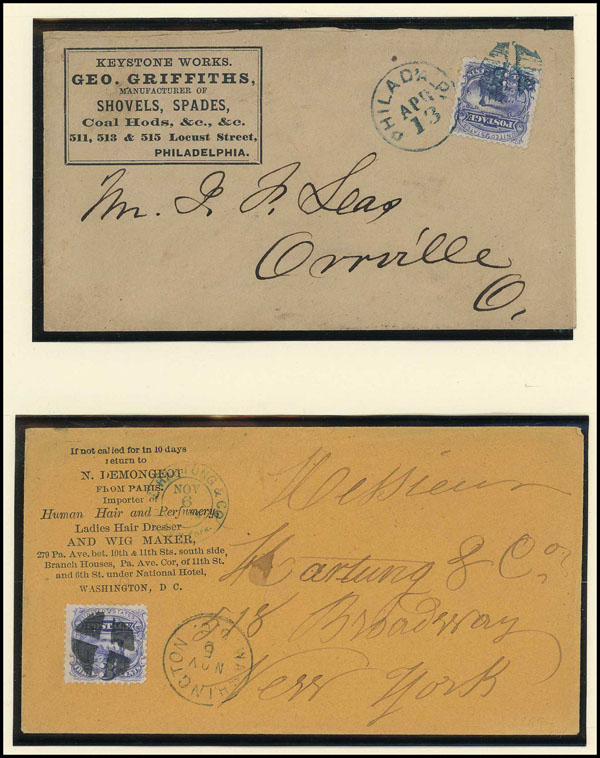 KEYSTONE WORKS.
GEO. GRIFFITHS,
MANUFACTURER OF
SHOVELS, SPADES,
Coal Hods, &c., &c.
511, 513 & 515 Locust Street,
PHILADELPHIA.
PHILADA
APR
13
POSTAGE
UNITED STATES
Mr. J. F. Seas
Orrville
O.
If not called for in 10 days
return to
N. DEMONGEOT
FROM PARIS.
Importer of
Human Hair and Perfumery
Ladies Hair Dresser
AND WIG MAKER,
279 Pa. Ave. bet. 10th & 11th Sts. south side,
Branch Houses, Pa. Ave. Cor, of 11th St.
and 6th St. under National Hotel,
WASHINGTON, D C.
HARTUNG & CO
NOV
6
Messieurs
Hartung & Co.
518 Broadway
New York
WASHINGTON
NOV
5